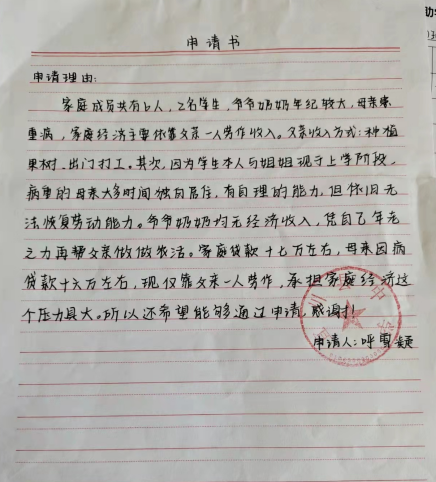 申请书
申请理由:
家庭成员共有6人,2名学生,爷爷奶奶年纪较大,母亲患
重病,家庭经济主要依靠父亲一人劳作收入。父亲收入方式:种植
果树、出门打工。其次,因为学生本人与姐姐现于上学阶段,
病重的母亲大多时间独自居住,有自理的能力,但依旧无
法恢复劳动能力。爷爷奶奶均无经济收入,凭自己年老
之力再帮父亲做做农活。家庭贷款十七万左右,母亲因病
贷款十六万左右,现仅靠父亲一人劳作,承担家庭经济这
个压力具大。所以还希望能够通过申请,感谢!
申请人:呼雪凝
助学